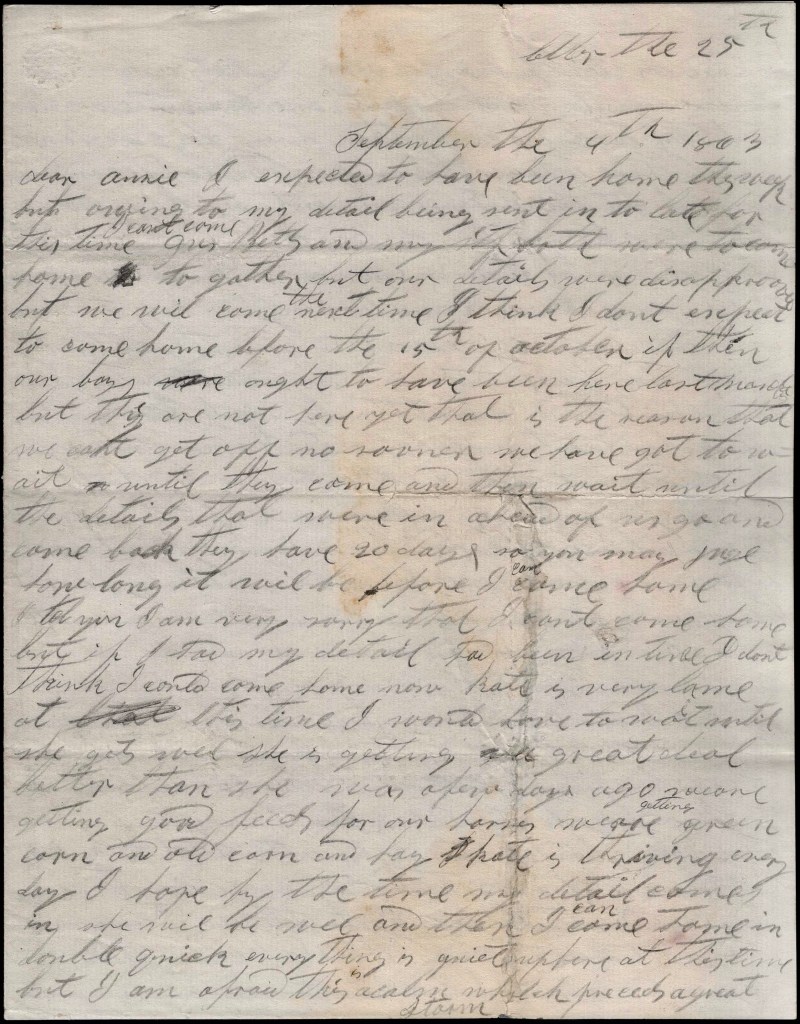 the 25th
September the 4th 1863
dear annie I expected to have been home this week
but owing to my detail being sent in to late for
this time I cant come Gus Betts and my self both were to come
home to gather but our details were disapprooved
but we wil come the next time I think I dont expect
to come home before the 15th of october if then
our boys ought to have been here last
but they are not here yet that is the reason that
we cant get off no sooner we have got to w-
ait until they come and then wait until
the details that were in ahead of us go and
come back they have 20 days so you may juge
how long it wil be before I can come home
I tel you I am very sorry that I cant come home
but if I had my detail had been in time I dont
think I could come home now kate is very lame
at this time I would have to wait until
she gets wel she is getting great deal
better than she was a few days ago we are
getting good feed for our horses we are getting green
corn and old corn and hay kate is thriving every
day I hope by the time my detail comes
in she wil be wel and then I can come home in
double quick every thing is quiet up here at this time
but I am afraid this is a calm which preceds a great
storm